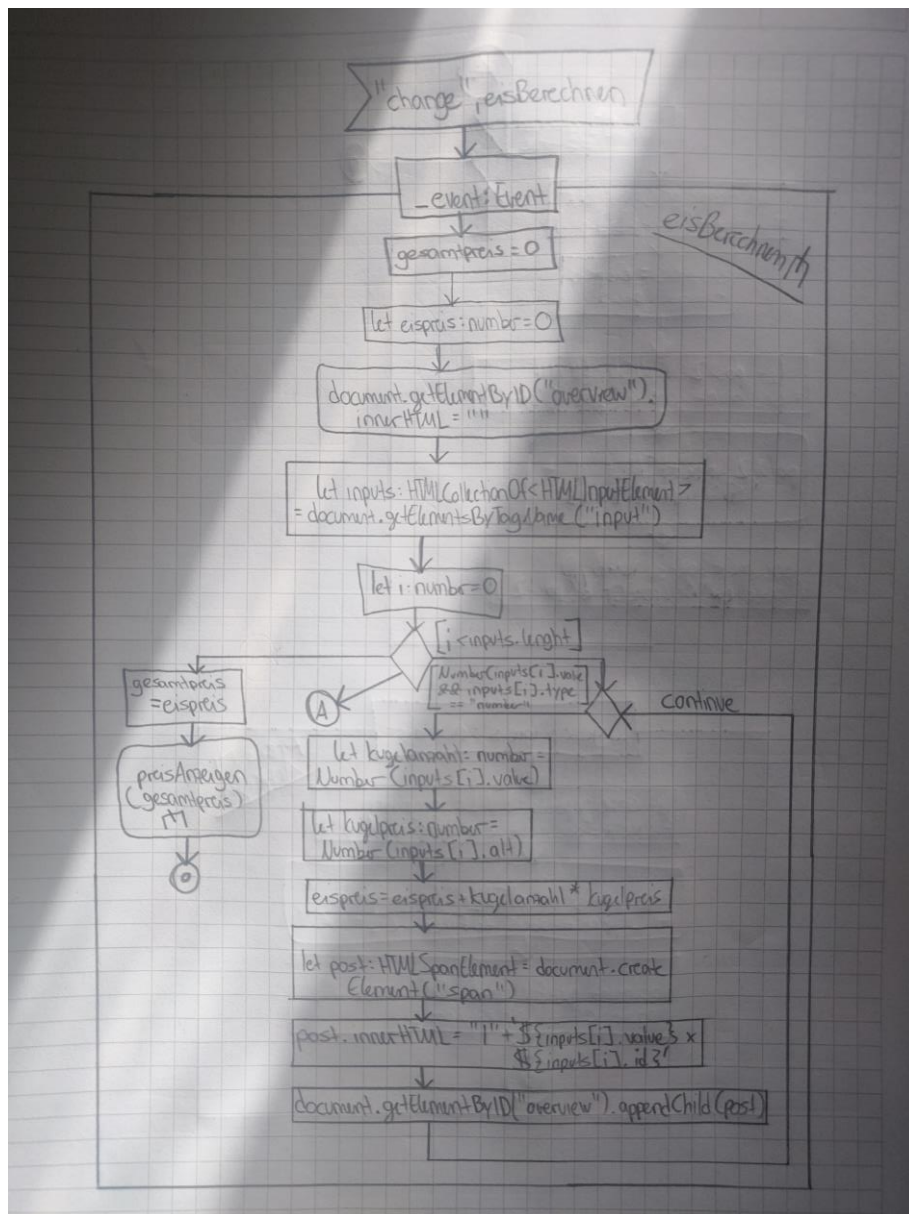 "change", eisBerechnen
_event: Event
eisBerechnen
gesamtpreis = 0
let eispreis: numbr = 0
document.getElementByID("overview").
innerHTML = ""
let inputs: HTMLCollectionOf<HTMLInputElement>
= document.getElementsByTagName("input")
let i: numbr = 0
[i < inputs.lenght]
Number(inputs[i].value
&& inputs[i].type
== "number"
A
continue
gesamtpreis
= eispreis
preisAnzeigen
(gesamtpreis)
let kugelanzahl: number =
Number(inputs[i].value)
let kugelpreis: number =
Number(inputs[i].alt)
eispreis = eispreis + kugelanzahl * kugelpreis
let post: HTMLSpanElement = document.create
Element("span")
post.innerHTML = "|" + `${inputs[i].value} x
${inputs[i].id}`
document.getElementByID("overview").appendChild(post)